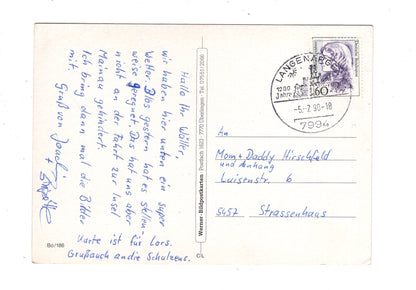 Hallo Ihr Wöller,
wir haben hier unten ein super
Wetter. Blos gestern hat es stellen-
weise geregnet. Das hat uns aber
nicht an der Fahrt zur Insel
Mainau gehindert.
Ich bring dann mal die Bilder
mit.
Gruß von Joachim
+
Karte ist für Lars.
Gruß auch an die Schulzens.
Bo/186
Werner-Bildpostkarten · Postfach 1623 · 7770 Überlingen · Tel. 07551/2006
C/L
LANGENARGEN
1200
Jahre
-5.-7.90-18
7994
60
Deutsche Bundespost
An
Mom + Daddy Hirschfeld
und Anhang
Luisenstr. 6
5457 Strassenhaus